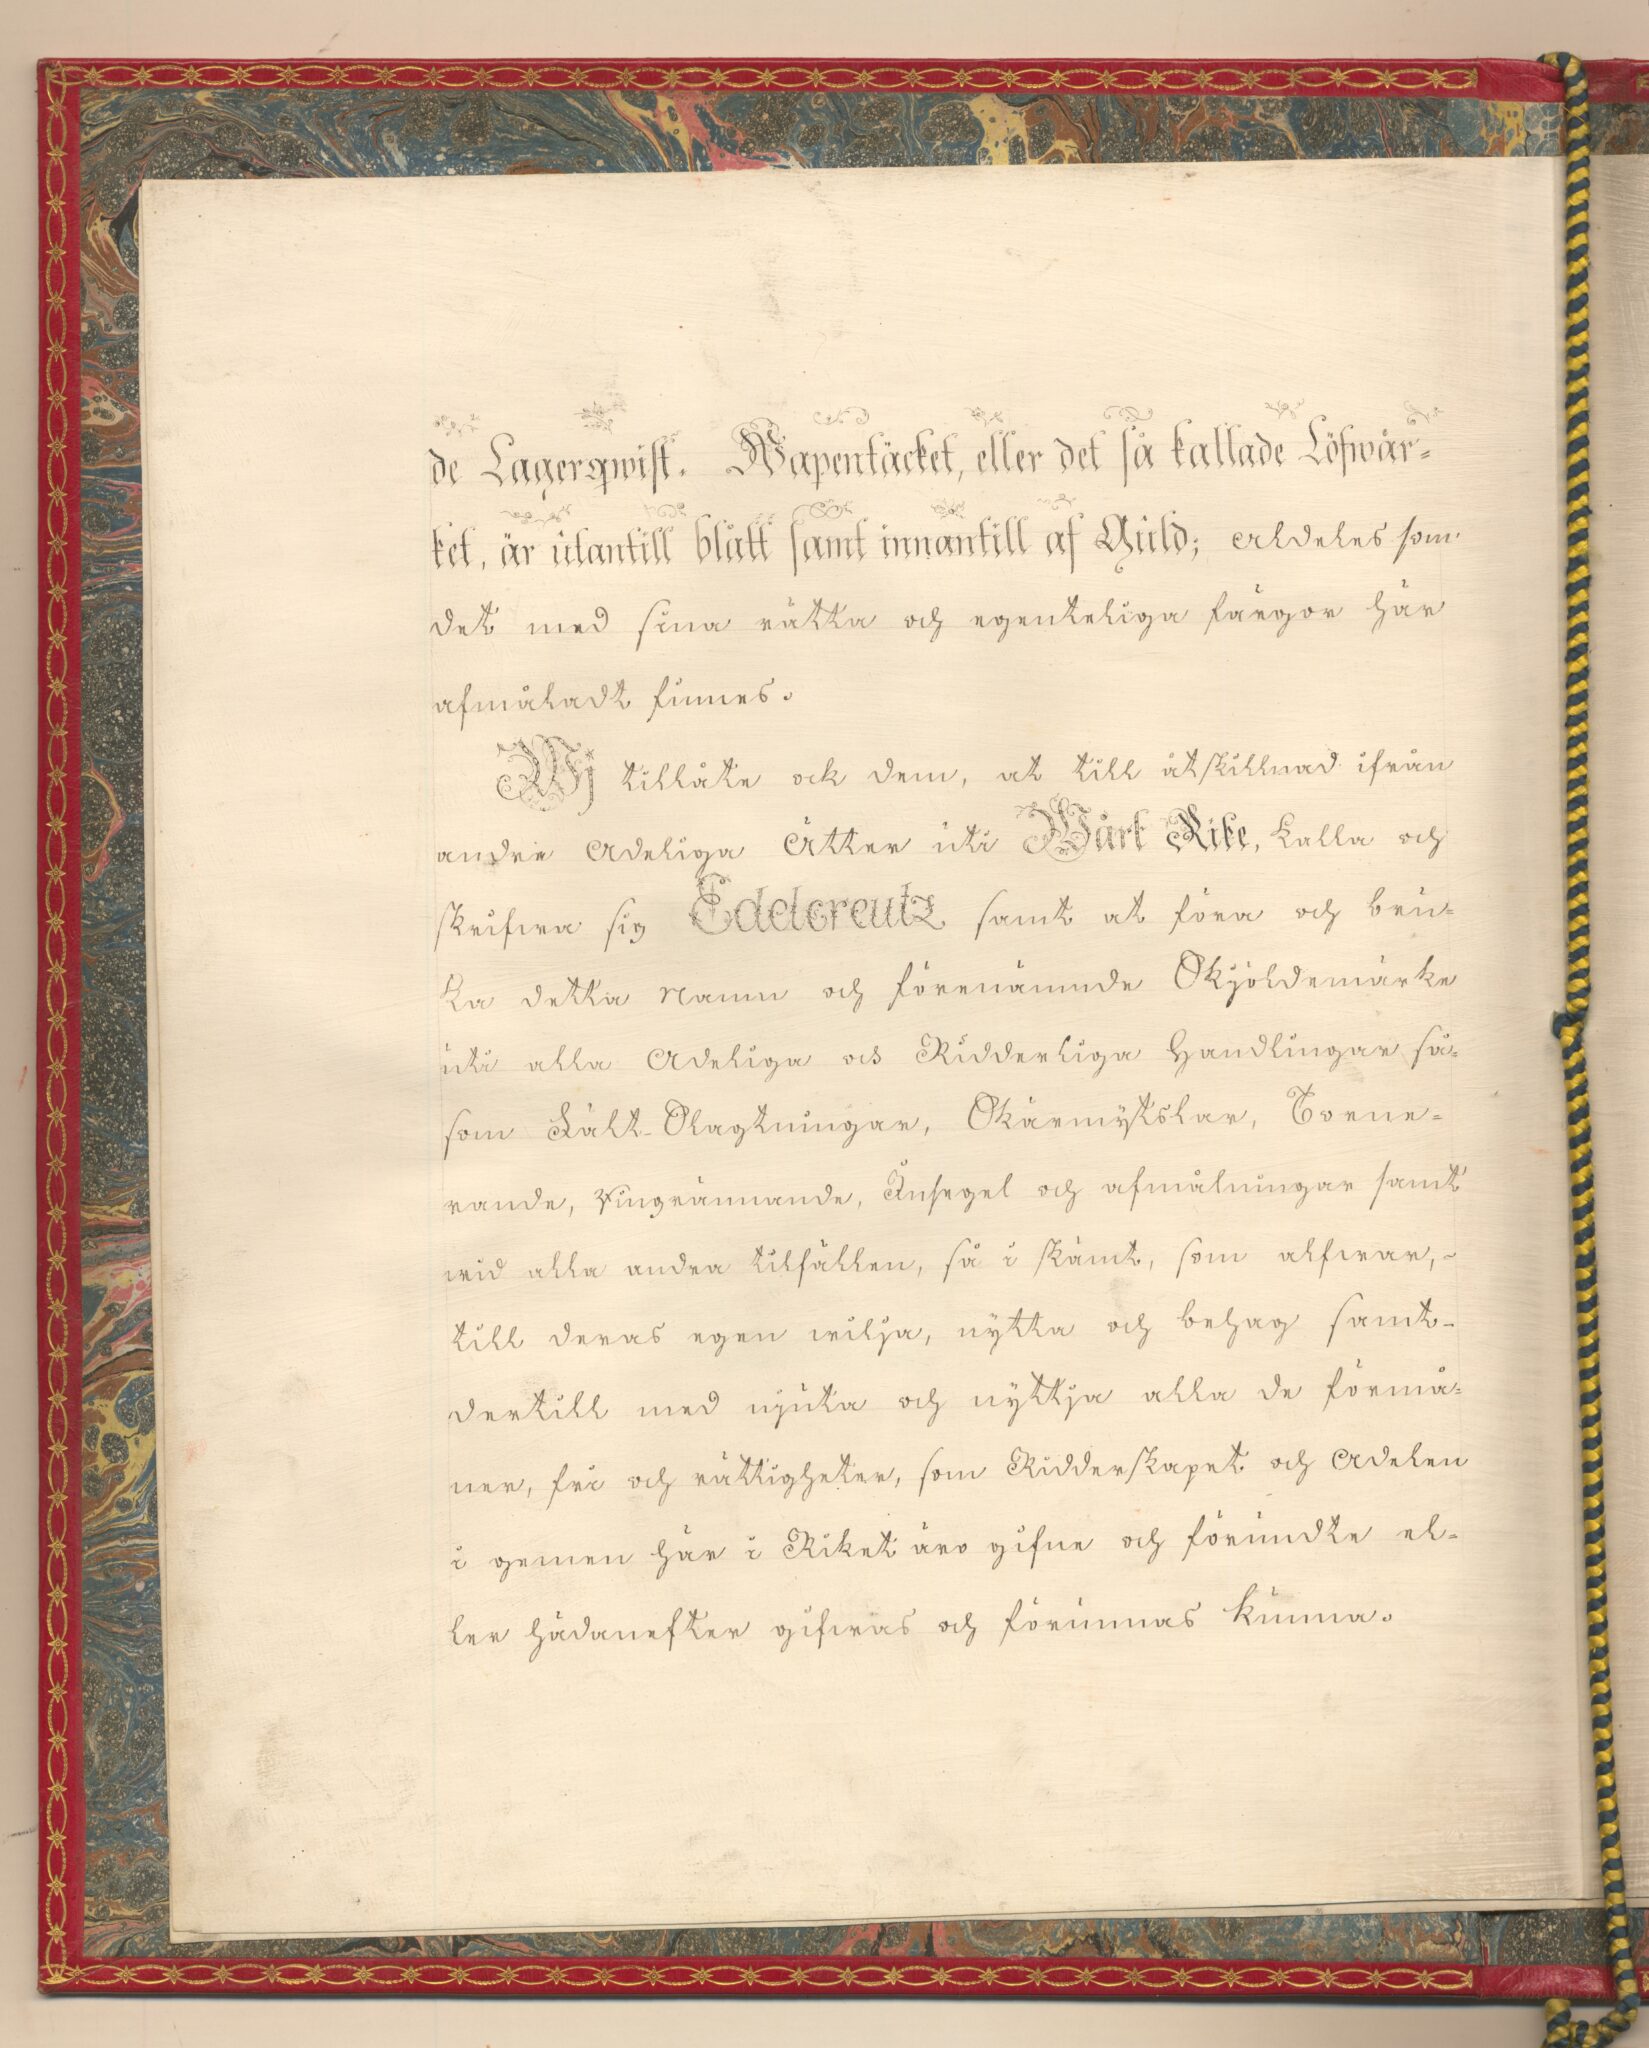 de Lagerqwist. Wapentäcket, eller det så kallade Löfwår-
ket, är utantill blått samt innantill af Guld; aldeles som
det med sina rätta och egenteliga färgor här
afmåladt finnes.
Wj tillåte ock dem, at till åtskillnad ifrån
andre Adeliga Ätter uti Wårt Rike, kalla och
skrifwa sig Edelcreutz samt at föra och bru-
ka detta Namn och förenämnde Skjöldemärke
uti alla Adeliga och Ridderliga Handlingar så-
som Fält-Slagtningar, Skärmytslar, Torne-
rande, Ringrännande, Insegel och afmålningar samt
wid alla andra tilfällen, så i skämt, som alfwar,
till deras egen wilja, nytta och behag samt
dertill med njuta och nyttja alla de förmå-
ner, fri och rättigheter, som Ridderskapet och Adelen
i gemen här i Riket äro gifne och förundte el-
ler hädanefter gifwas och förunnas kunna.